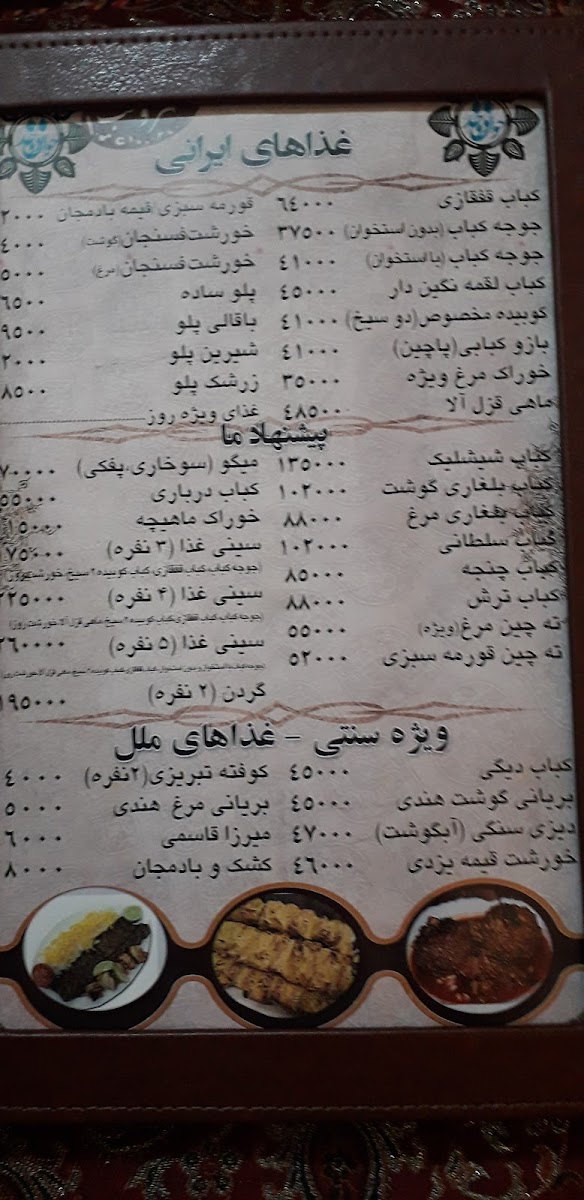 غذاهای ایرانی
کباب قفقازی ۶۴۰۰۰
جوجه کباب (بدون استخوان) ۳۷۵۰۰
جوجه کباب (با استخوان) ۴۱۰۰۰
کباب لقمه نگین دار ۴۵۰۰۰
کوبیده مخصوص (دو سیخ) ۴۱۰۰۰
بازو کبابی (پاچین) ۴۱۰۰۰
خوراک مرغ ویژه ۳۵۰۰۰
ماهی قزل آلا ۴۸۵۰۰
قورمه سبزی/قیمه بادمجان ۲۰۰۰
خورشت فسنجان (گوشت) ۴۰۰۰
خورشت فسنجان (مرغ) ۵۰۰۰
پلو ساده ۶۵۰۰
باقالی پلو ۹۵۰۰
شیرین پلو ۲۰۰۰
زرشک پلو ۸۵۰۰
غذای ویژه روز
پیشنهاد ما
کباب شیشلیک ۱۳۵۰۰۰
کباب بلغاری گوشت ۱۰۲۰۰۰
کباب بلغاری مرغ ۸۸۰۰۰
کباب سلطانی ۱۰۲۰۰۰
کباب چنجه ۸۵۰۰۰
کباب ترش ۸۸۰۰۰
ته چین مرغ (ویژه) ۵۵۰۰۰
ته چین قورمه سبزی ۵۲۰۰۰
میگو (سوخاری، پفکی) ۷۰۰۰۰
کباب درباری ۵۵۰۰۰
خوراک ماهیچه ۱۵۰۰۰
سینی غذا (۳ نفره) ۷۵۰۰۰
سینی غذا (۴ نفره) ۲۲۵۰۰۰
سینی غذا (۵ نفره) ۲۶۰۰۰۰
گردن (۲ نفره) ۱۹۵۰۰۰
ویژه سنتی - غذاهای ملل
کباب دیگی ۴۵۰۰۰
بریانی گوشت هندی ۴۵۰۰۰
دیزی سنگی (آبگوشت) ۴۷۰۰۰
خورشت قیمه یزدی ۴۶۰۰۰
کوفته تبریزی (۲نفره) ۴۰۰۰
بریانی مرغ هندی ۵۰۰۰
میرزا قاسمی ۶۰۰۰
کشک و بادمجان ۸۰۰۰